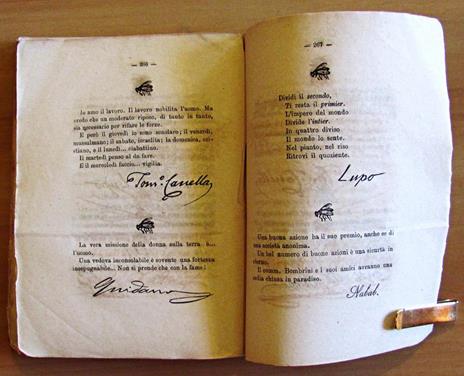 — 266 —
Io amo il lavoro. Il lavoro nobilita l'uomo. Ma
credo che un moderato riposo, di tanto in tanto,
sia necessario per rifare le forze.
E però il giovedì io sono scuolaro; il venerdì,
mussulmano; il sabato, israelita; la domenica, cri-
stiano, e il lunedì... ciabattino.
Il martedì penso al da fare.
E il mercoledì faccio... vigilia.
Tom.o Canella
La vera missione della donna sulla terra è...
l'uomo.
Una vedova inconsolabile è sovente una fortezza
inespugnabile... Non si prende che con la fame!
Guidano
— 267 —
Dividi il secondo,
Ti resta il primier.
L'impero del mondo
Divide l'intier.
In quattro diviso
Il mondo lo sente.
Nel pianto, nel riso
Ritrovi il quoziente.
Lupo
Una buona azione ha il suo premio, anche se di
una società anonima.
Un bel numero di buone azioni è una sicurtà in
eterno.
Il comm. Bombrini e i suoi amici avranno una
sedia chiusa in paradiso.
Nabab.